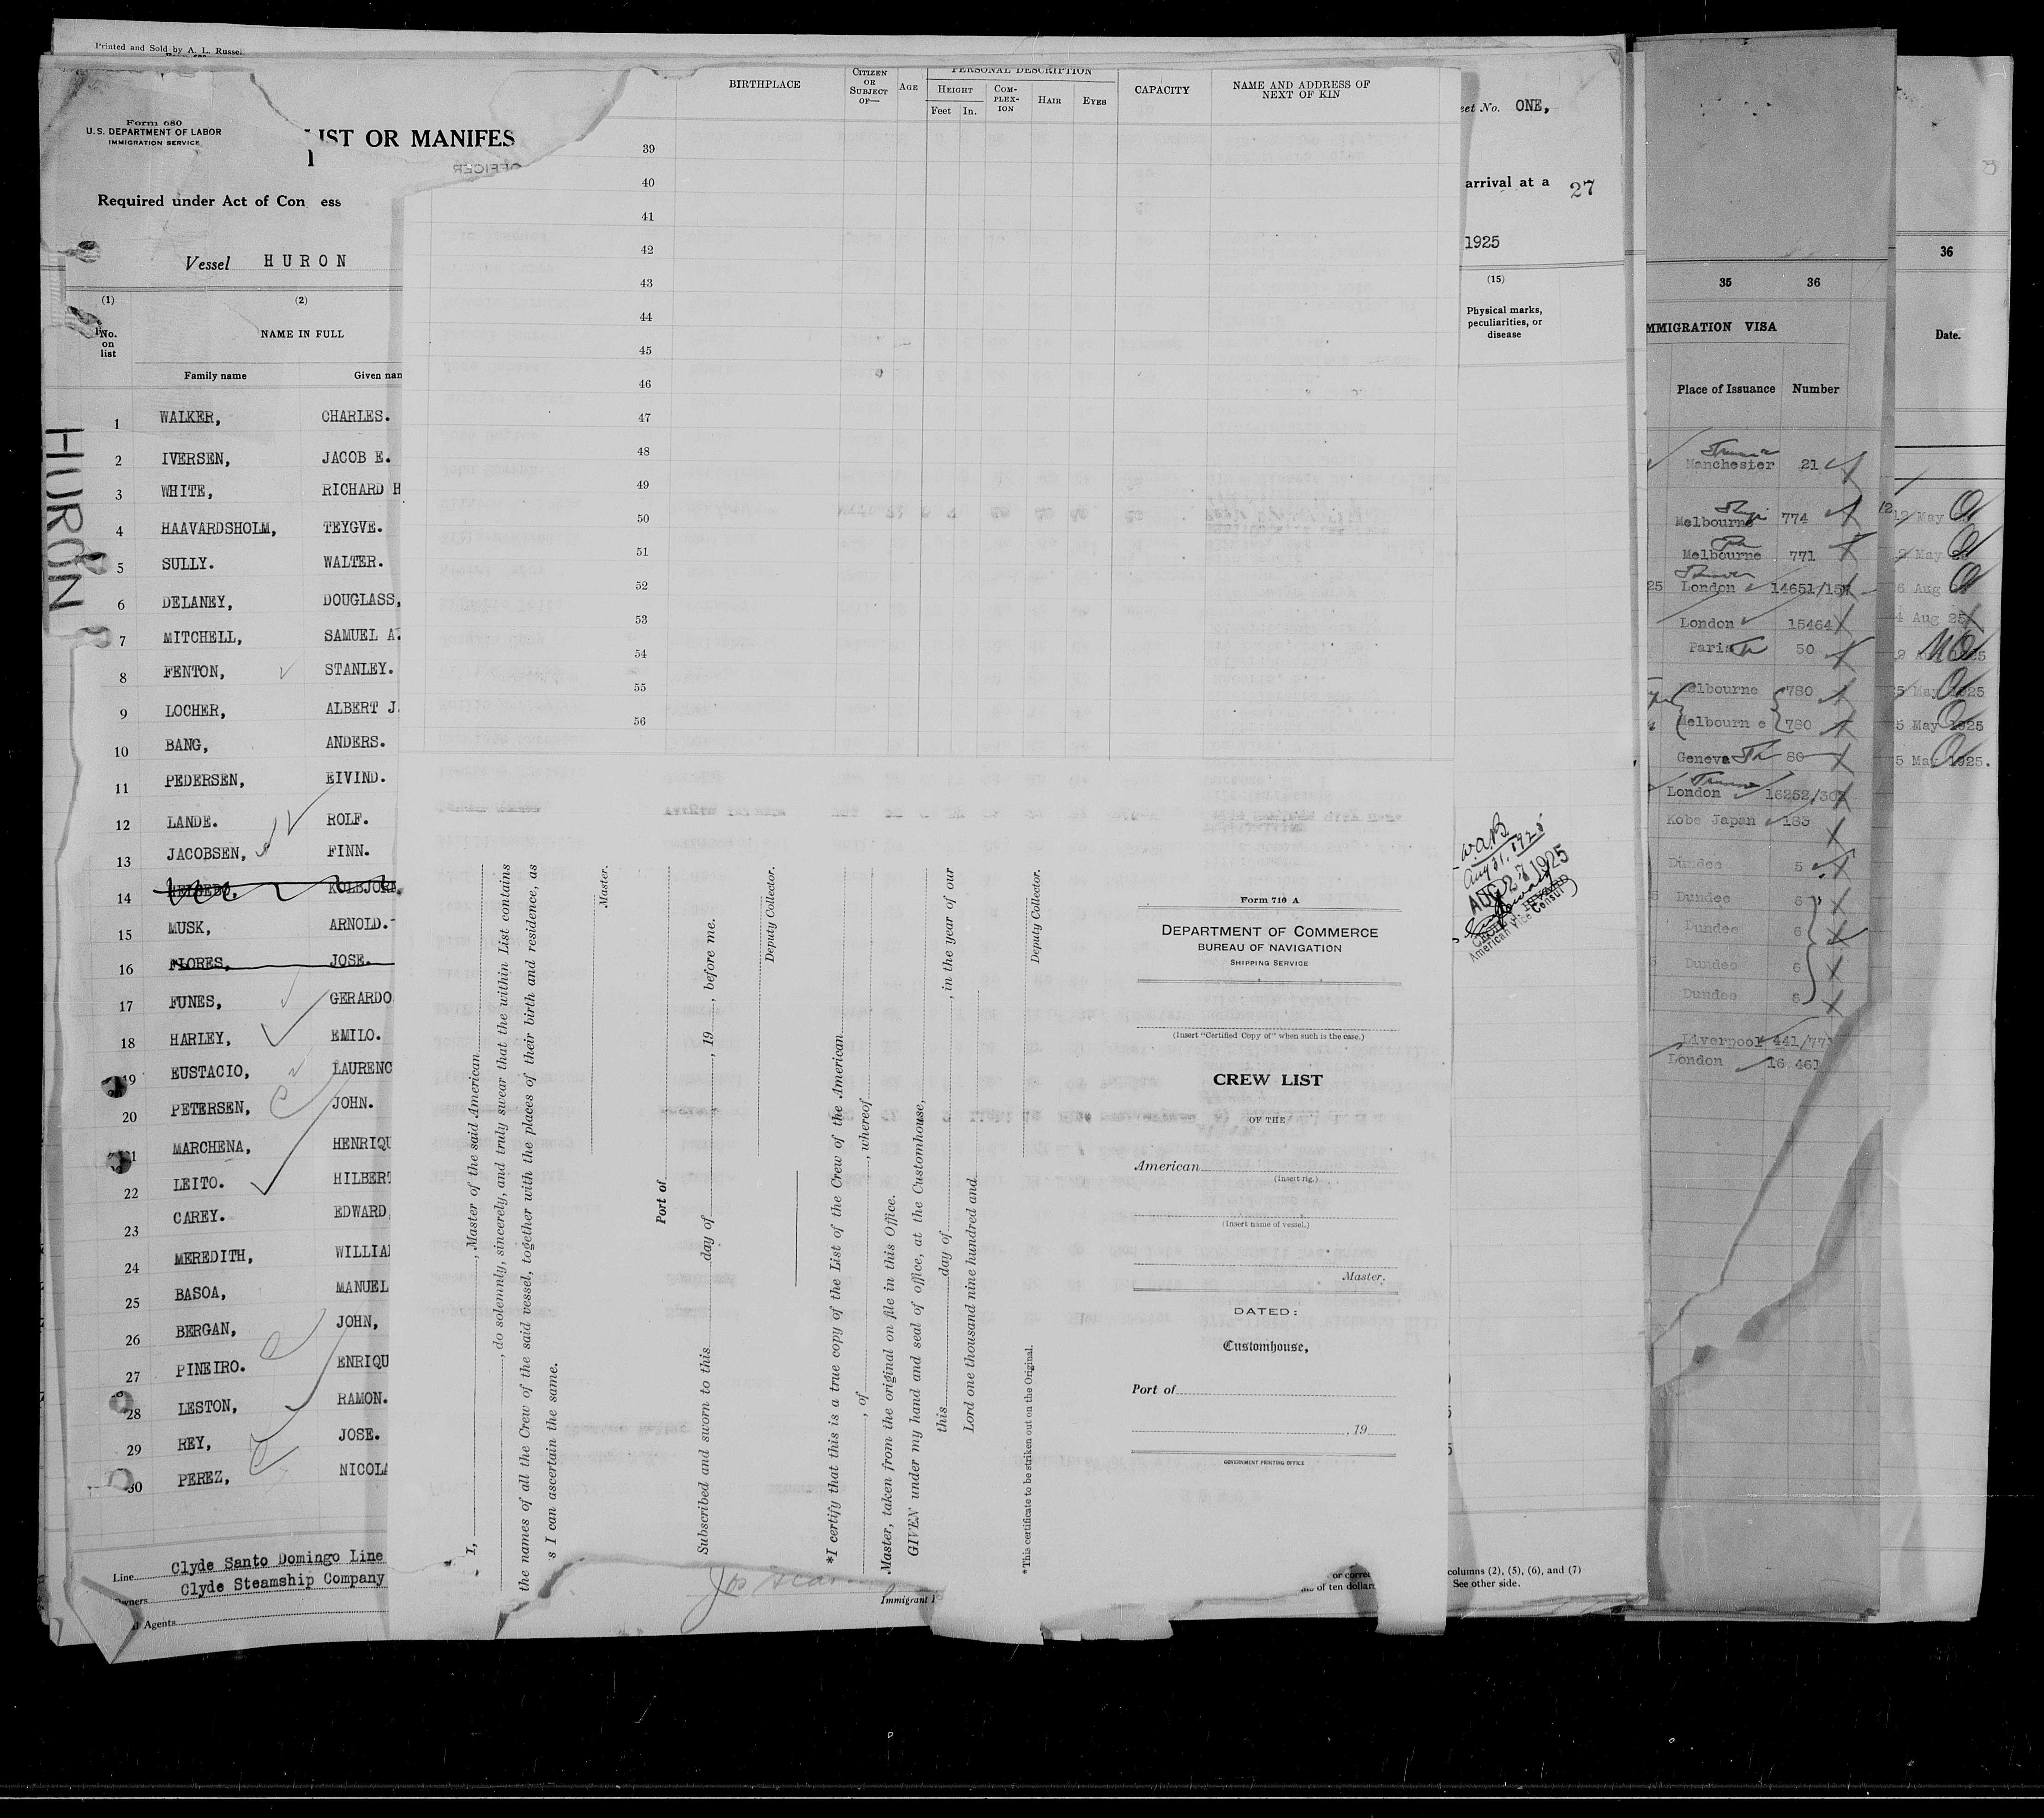 Printed and Sold by A. L. Russel
Form 680
U.S. DEPARTMENT OF LABOR
IMMIGRATION SERVICE
IST OR MANIFES
OFFICER
Required under Act of Con ess
Vessel HURON
(1) (2)
No. on list
NAME IN FULL
Family name Given nam
HURON
1 WALKER, CHARLES.
2 IVERSEN, JACOB E.
3 WHITE, RICHARD H
4 HAAVARDSHOLM, TEYGVE.
5 SULLY. WALTER.
6 DELANEY, DOUGLASS,
7 MITCHELL, SAMUEL A.
8 FENTON, STANLEY.
9 LOCHER, ALBERT J.
10 BANG, ANDERS.
11 PEDERSEN, EIVIND.
12 LANDE. ROLF.
13 JACOBSEN, FINN.
14 KOLBJORN.
15 MUSK, ARNOLD.
16 FLORES, JOSE.
17 FUNES, GERARDO
18 HARLEY, EMILO.
19 EUSTACIO, LAURENC
20 PETERSEN, JOHN.
21 MARCHENA, HENRIQU
22 LEITO. HILBERT
23 CAREY. EDWARD
24 MEREDITH, WILLIA
25 BASOA, MANUEL
26 BERGAN, JOHN,
27 PINEIRO. ENRIQU
28 LESTON, RAMON.
29 REY, JOSE.
30 PEREZ, NICOLA
Line Clyde Santo Domingo Line
Owners Clyde Steamship Company
l Agents
BIRTHPLACE
CITIZEN OR SUBJECT OF—
AGE
PERSONAL DESCRIPTION
HEIGHT
Feet In.
COM-PLEX-ION
HAIR
EYES
CAPACITY
NAME AND ADDRESS OF NEXT OF KIN
39
40
41
42
43
44
45
46
47
48
49
50
51
52
53
54
55
56
I, , Master of the said American
, do solemnly, sincerely, and truly swear that the within List contains
the names of all the Crew of the said vessel, together with the places of their birth and residence, as
s I can ascertain the same.
Master.
Port of
Subscribed and sworn to this day of , 19 , before me.
Deputy Collector.
*I certify that this is a true copy of the List of the Crew of the American
, of , whereof
Master, taken from the original on file in this Office.
GIVEN under my hand and seal of office, at the Customhouse,
this day of , in the year of our
Lord one thousand nine hundred and
Deputy Collector.
*This certificate to be striken out on the Original.
Form 710 A
DEPARTMENT OF COMMERCE
BUREAU OF NAVIGATION
SHIPPING SERVICE
(Insert "Certified Copy of" when such is the case.)
CREW LIST
OF THE
American
(Insert rig.)
(Insert name of vessel.)
Master.
DATED:
Customhouse,
Port of
, 19
GOVERNMENT PRINTING OFFICE
Immigrant I
or correc
of ten dollars
columns (2), (5), (6), and (7)
See other side.
eet No. ONE,
arrival at a 27
1925
(15)
Physical marks, peculiarities, or disease
W.A.B.
Aug 31, 1925
AUG 27 1925
American Vice Consul
35 36
MMIGRATION VISA
Place of Issuance Number
Manchester 21
Melbourne 774
Melbourne 771
25 London 14651/15
London 15464
Paris 50
elbourne 780
Melbourn e 780
Geneva 80
London 16252/30
Kobe Japan 183
Dundee 5
Dundee 6
Dundee 6
Dundee 6
Dundee 6
Liverpool 441/77
London 16 461
36
Date.
12 May
May
6 Aug
4 Aug 25
1925
5 May 1925
5 May 1925
5 May 1925.